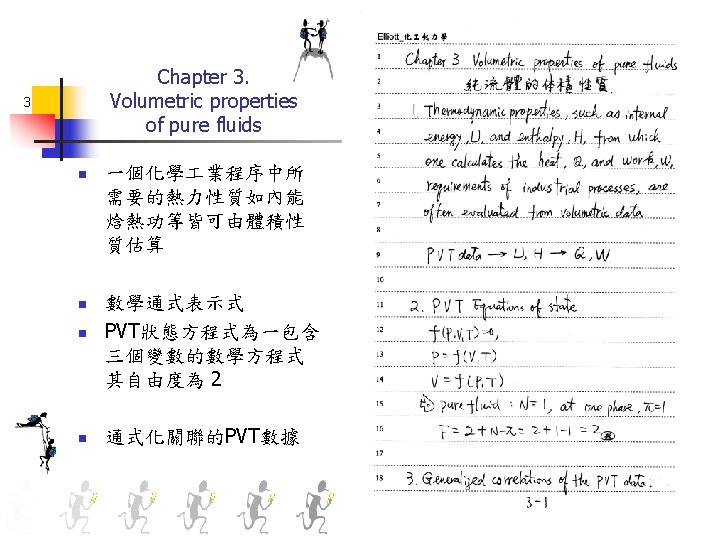 3
Chapter 3.
Volumetric properties
of pure fluids
一個化學工業程序中所
需要的熱力性質如內能
焓熱功等皆可由體積性
質估算
數學通式表示式
PVT狀態方程式為一包含
三個變數的數學方程式
其自由度為 2
通式化關聯的PVT數據
Elliott_化工熱力學
1 Chapter 3 Volumetric properties of pure fluids
2 純流體的体積性質
3 1. Thermodynamic properties, such as internal
4 energy, U, and enthalpy, H, from which
5 one calculates the heat, Q, and work, W,
6 requirements of industrial processes, are
7 often evaluated from volumetric data
8
9 PVT data → U, H → Q, W
10
11 2. PVT Equations of state
12 f(P,V,T)=0,
13 P = f(V,T)
14 V = f(P,T)
15 pure fluid : N=1, at one phase, π=1
16 F = 2+N-π = 2+1-1 = 2
17
18 3. Generalized correlations of the PVT data.
3-1